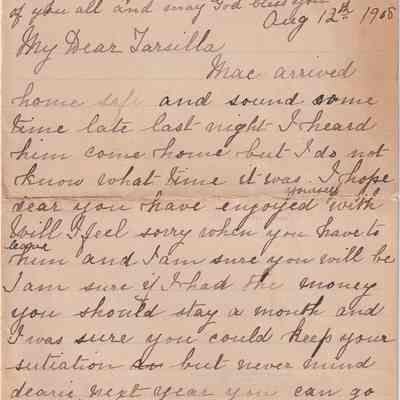 of you all and may God bless you
Aug 12th 1908
My Dear Tarsilla
Mac arrived
home safe and sound some
time late last night I heard
him come home but I do not
know what time it was. I hope
dear you have enjoyed yourself with
Will I feel sorry when you have to
leave him and I am sure you will be
I am sure if I had the money
you should stay a month and
I was sure you could keep your
sutiation but never mind
dearie next year you can go